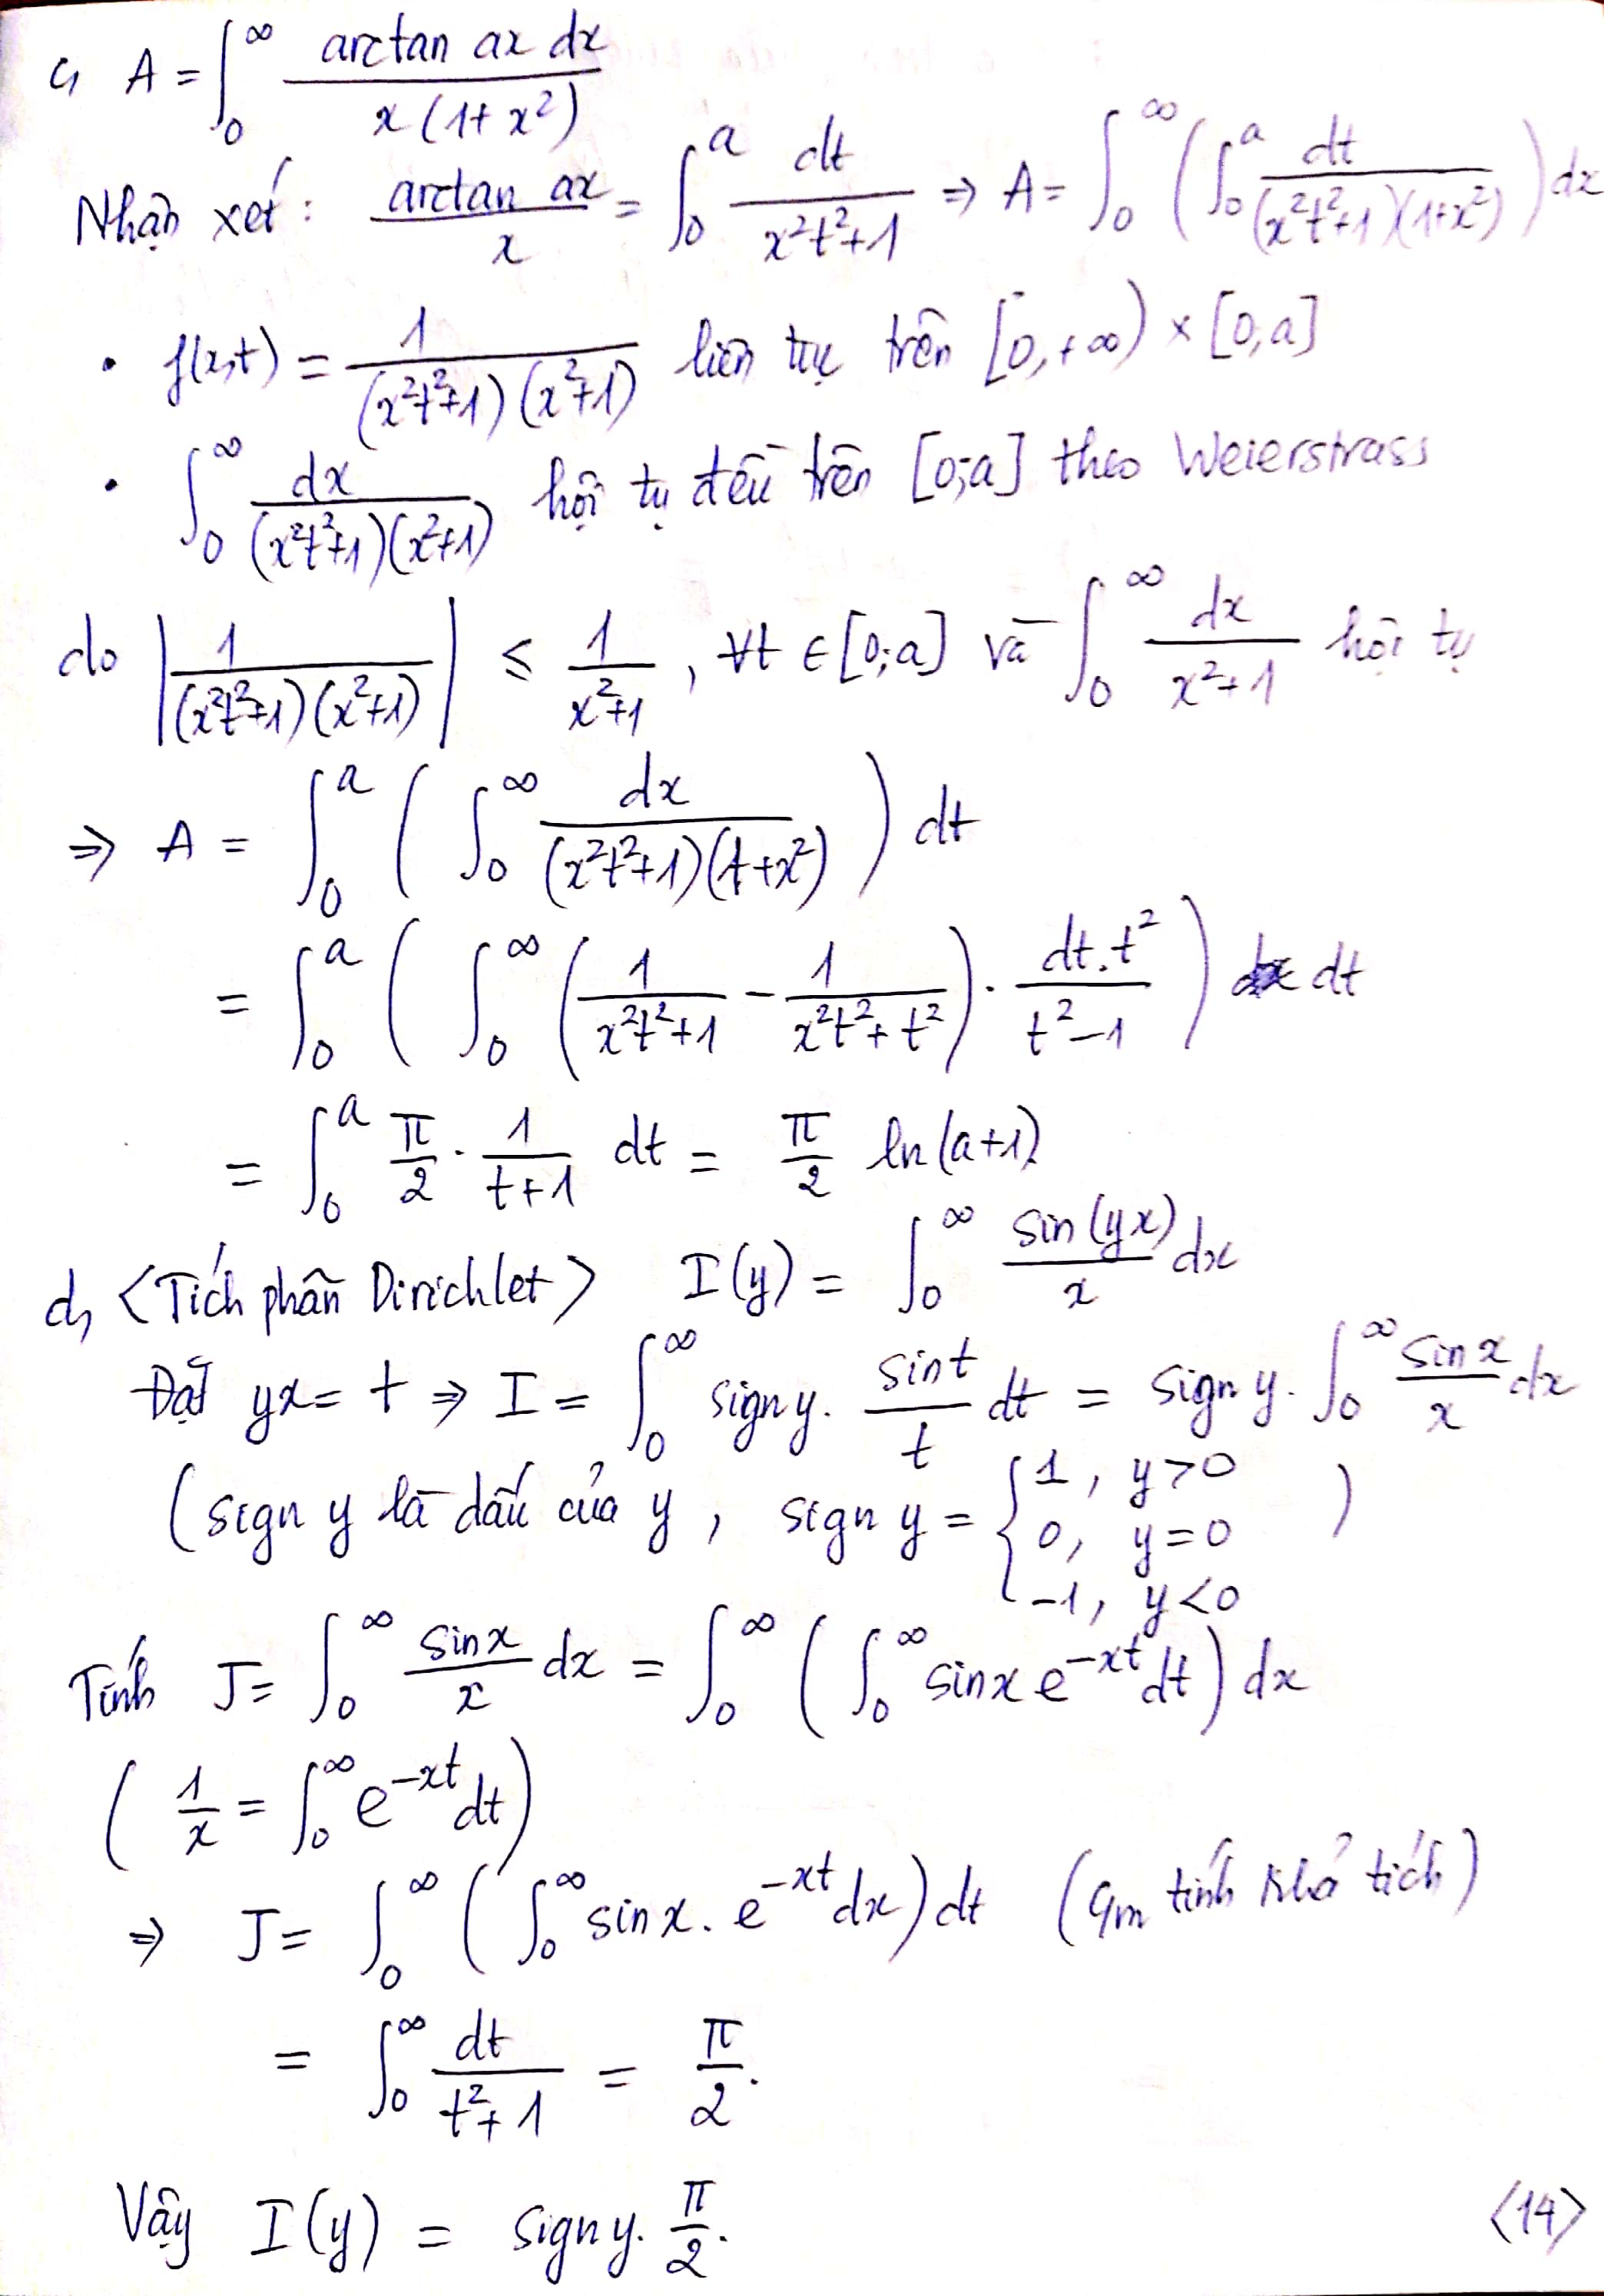 c, A = ∫₀^∞ arctan ax dx / x(1+x²)
Nhận xét : arctan ax / x = ∫₀^a dt / x²t²+1 ⇒ A = ∫₀^∞ ( ∫₀^a dt / (x²t²+1)(1+x²) ) dx
• f(x,t) = 1 / (x²t²+1)(x²+1) liên tục trên [0,+∞) × [0,a]
• ∫₀^∞ dx / (x²t²+1)(x²+1) hội tụ đều trên [0;a] theo Weierstrass
do | 1 / (x²t²+1)(x²+1) | ≤ 1 / x²+1 , ∀t ∈ [0;a] và ∫₀^∞ dx / x²+1 hội tụ
⇒ A = ∫₀^a ( ∫₀^∞ dx / (x²t²+1)(1+x²) ) dt
= ∫₀^a ( ∫₀^∞ ( 1 / x²t²+1 − 1 / x²t²+t² ) . dt.t² / t²−1 ) dt
= ∫₀^a π/2 . 1 / t+1 dt = π/2 ln(a+1)
d, <Tích phân Dirichlet> I(y) = ∫₀^∞ sin(yx) / x dx
Đặt yx = t ⇒ I = ∫₀^∞ sign y. sin t / t dt = sign y. ∫₀^∞ sin x / x dx
(sign y là dấu của y , sign y = { 1 , y>0
0, y=0 )
-1, y<0
Tính J = ∫₀^∞ sin x / x dx = ∫₀^∞ ( ∫₀^∞ sin x e^{-xt} dt ) dx
( 1/x = ∫₀^∞ e^{-xt} dt )
⇒ J = ∫₀^∞ ( ∫₀^∞ sin x. e^{-xt} dx ) dt ( tính khả tích )
= ∫₀^∞ dt / t²+1 = π/2.
Vậy I(y) = sign y. π/2.
<14>